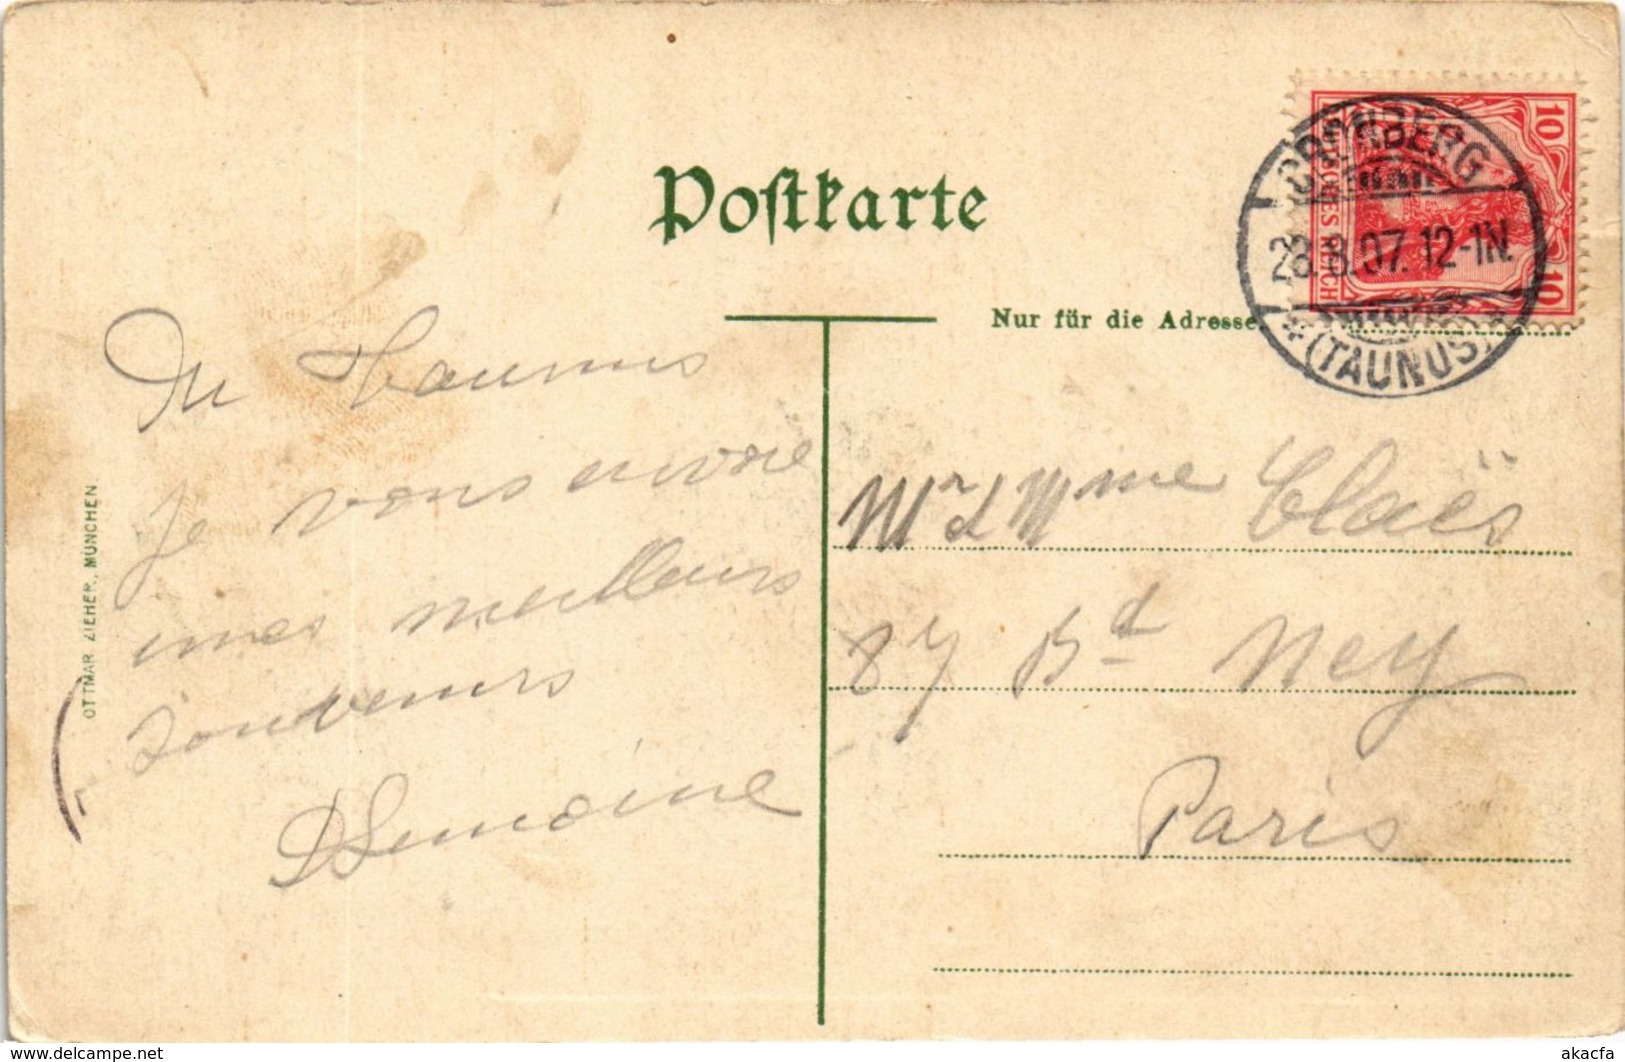 Postkarte
Nur für die Adresse.
CRONBERG
28.8.07. 12-1N.
* (TAUNUS) *
10
DEUTSCHES REICH
10
Du Taunus
Je vous envoie
mes meilleurs
souvenirs
Lemoine
Mr & Mme Claës
87 Bd Ney
Paris
OTTMAR ZIEHER, MÜNCHEN
www.delcampe.net
akacfa